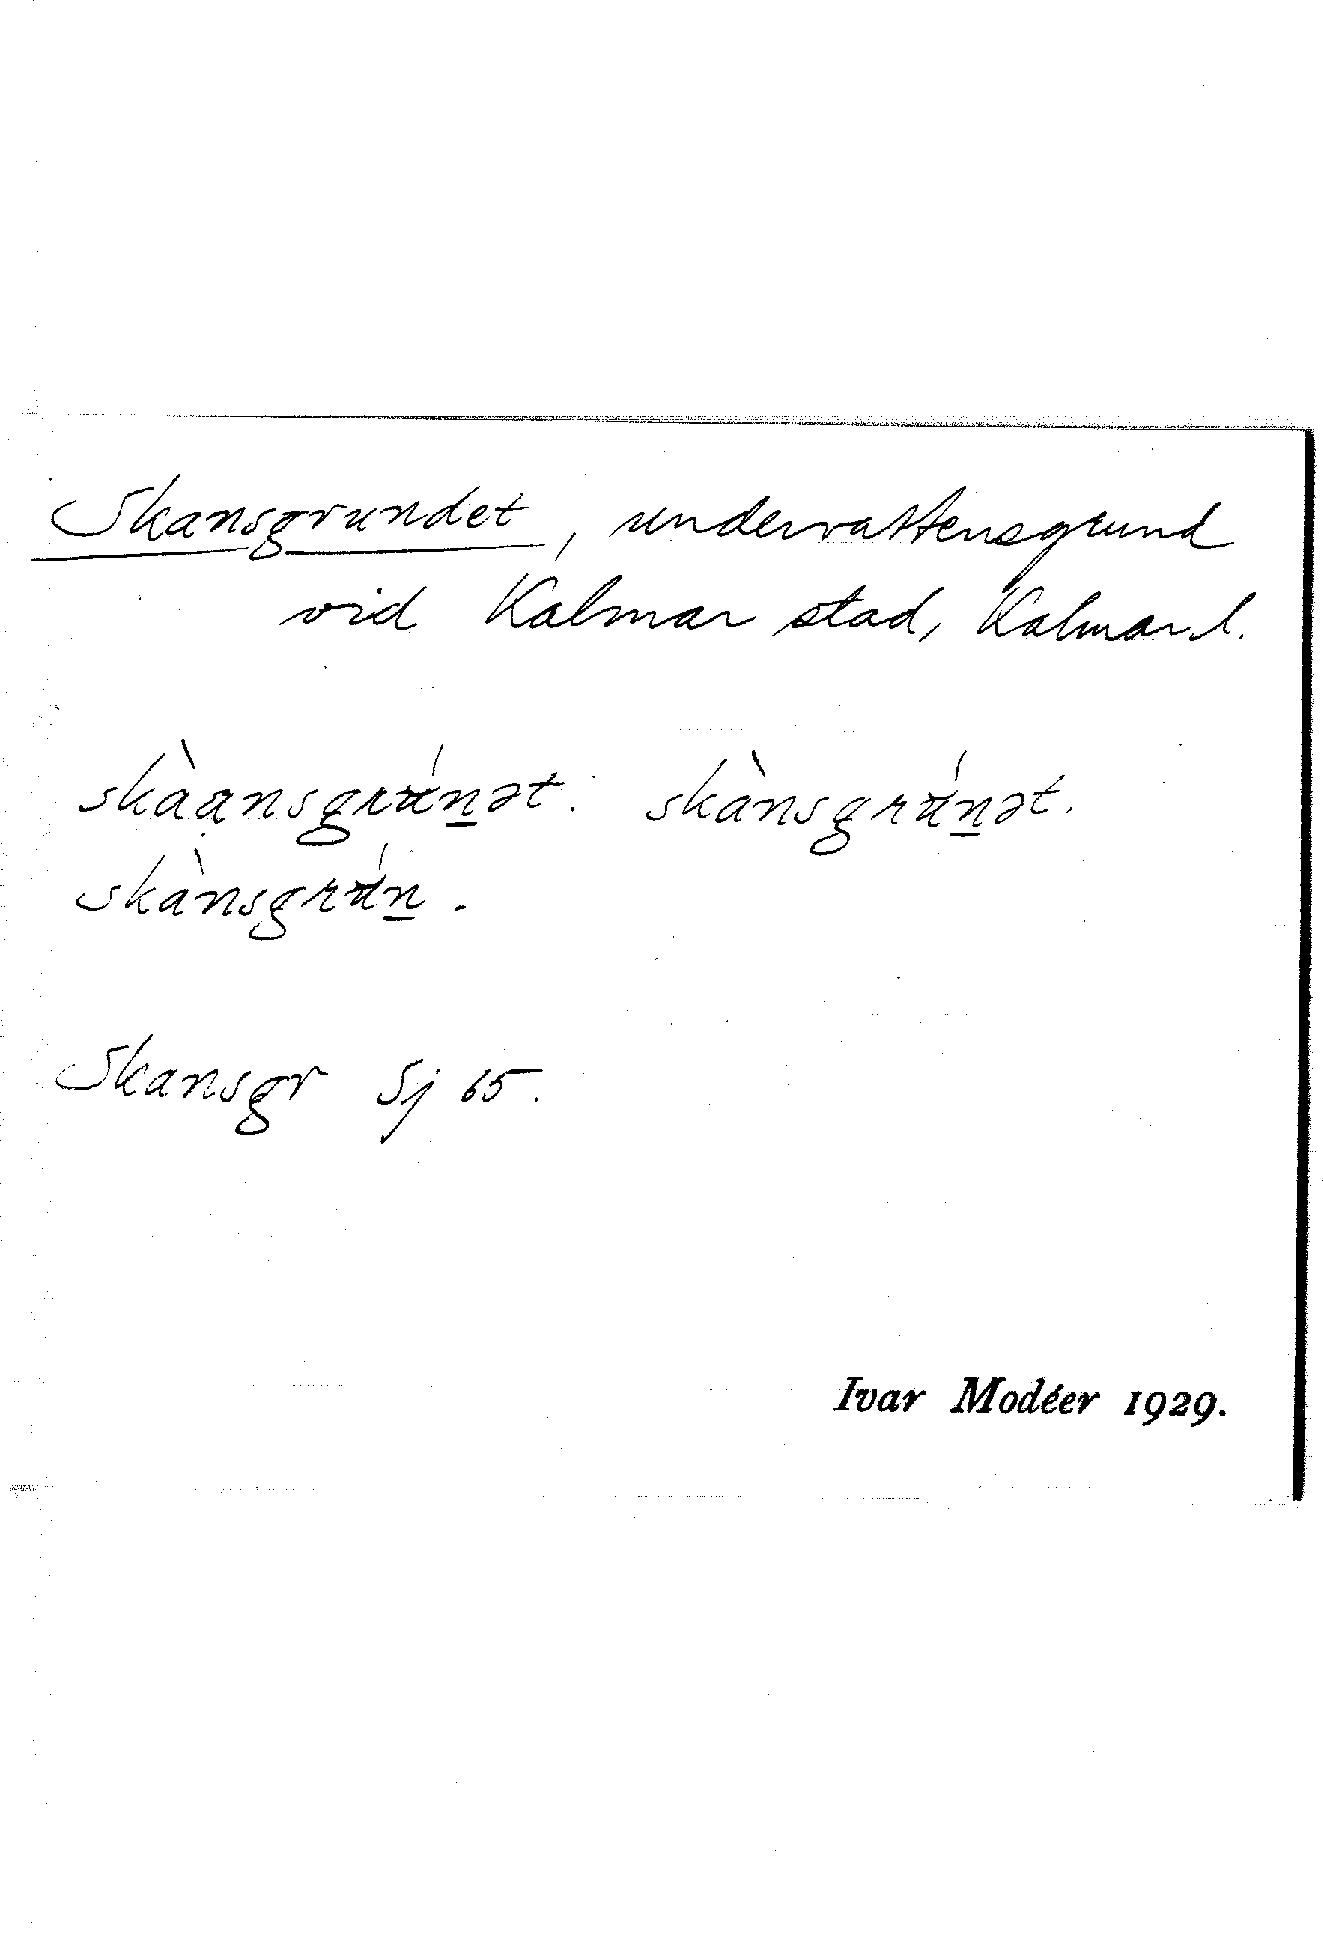 Skansgrundet, undervattensgrund
vid Kalmar stad, Kalmar l.
skàansgrún̲ət. skànsgrún̲ət.
skànsgrún̲.
Skansgr Sj 65.
Ivar Modéer 1929.